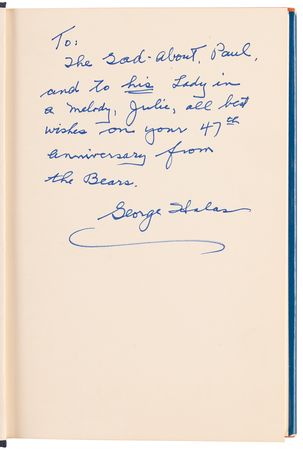 To:
The Gad-About, Paul,
and to his Lady in
a melody, Julie, all best
wishes on your 47th
anniversary from
the Bears.
George Halas